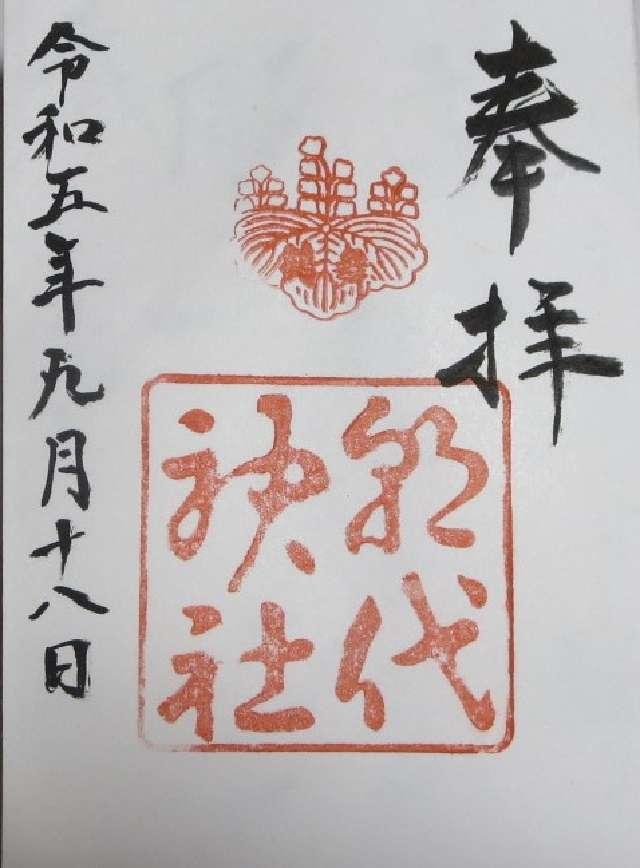 奉拝
朝代
神社
令和五年九月十八日